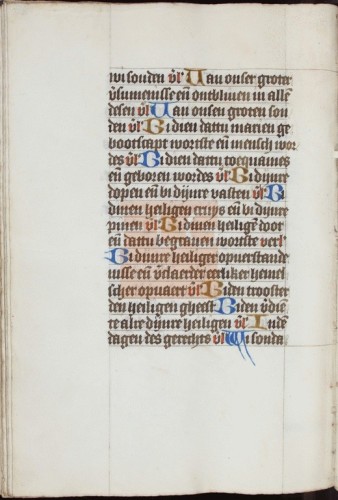 wi sonden v̄l' Uan onser groter
v̄sumenisse en̄ ontbliuen in alle
desen v̄l' Uan onsen groten son
den v̄l' Bi dien dattu marien ge
bootscapt worste en̄ mensch wor
des v̄l' Bi dien dattu toeqnaemes
en̄ geboren wordes v̄l' Bi dijnre
dopen en̄ bi dijnre vasten v̄l' Bi
dinen heiligen cruys en̄ bi dijnre
pinen v̄l' Bi dinen heilige door
en̄ dattu begrauen worste verl'
Bi dijnre heiliger opuerstande
nisse en̄ v̄claerder eerliker hemel
scher opuaert v̄l' Bi den trooster
den heilighen gheest Bi den v̄die
te alre dijnre heiligen v̄l' In de
dagen des gerechts v̄l' Wi sonda